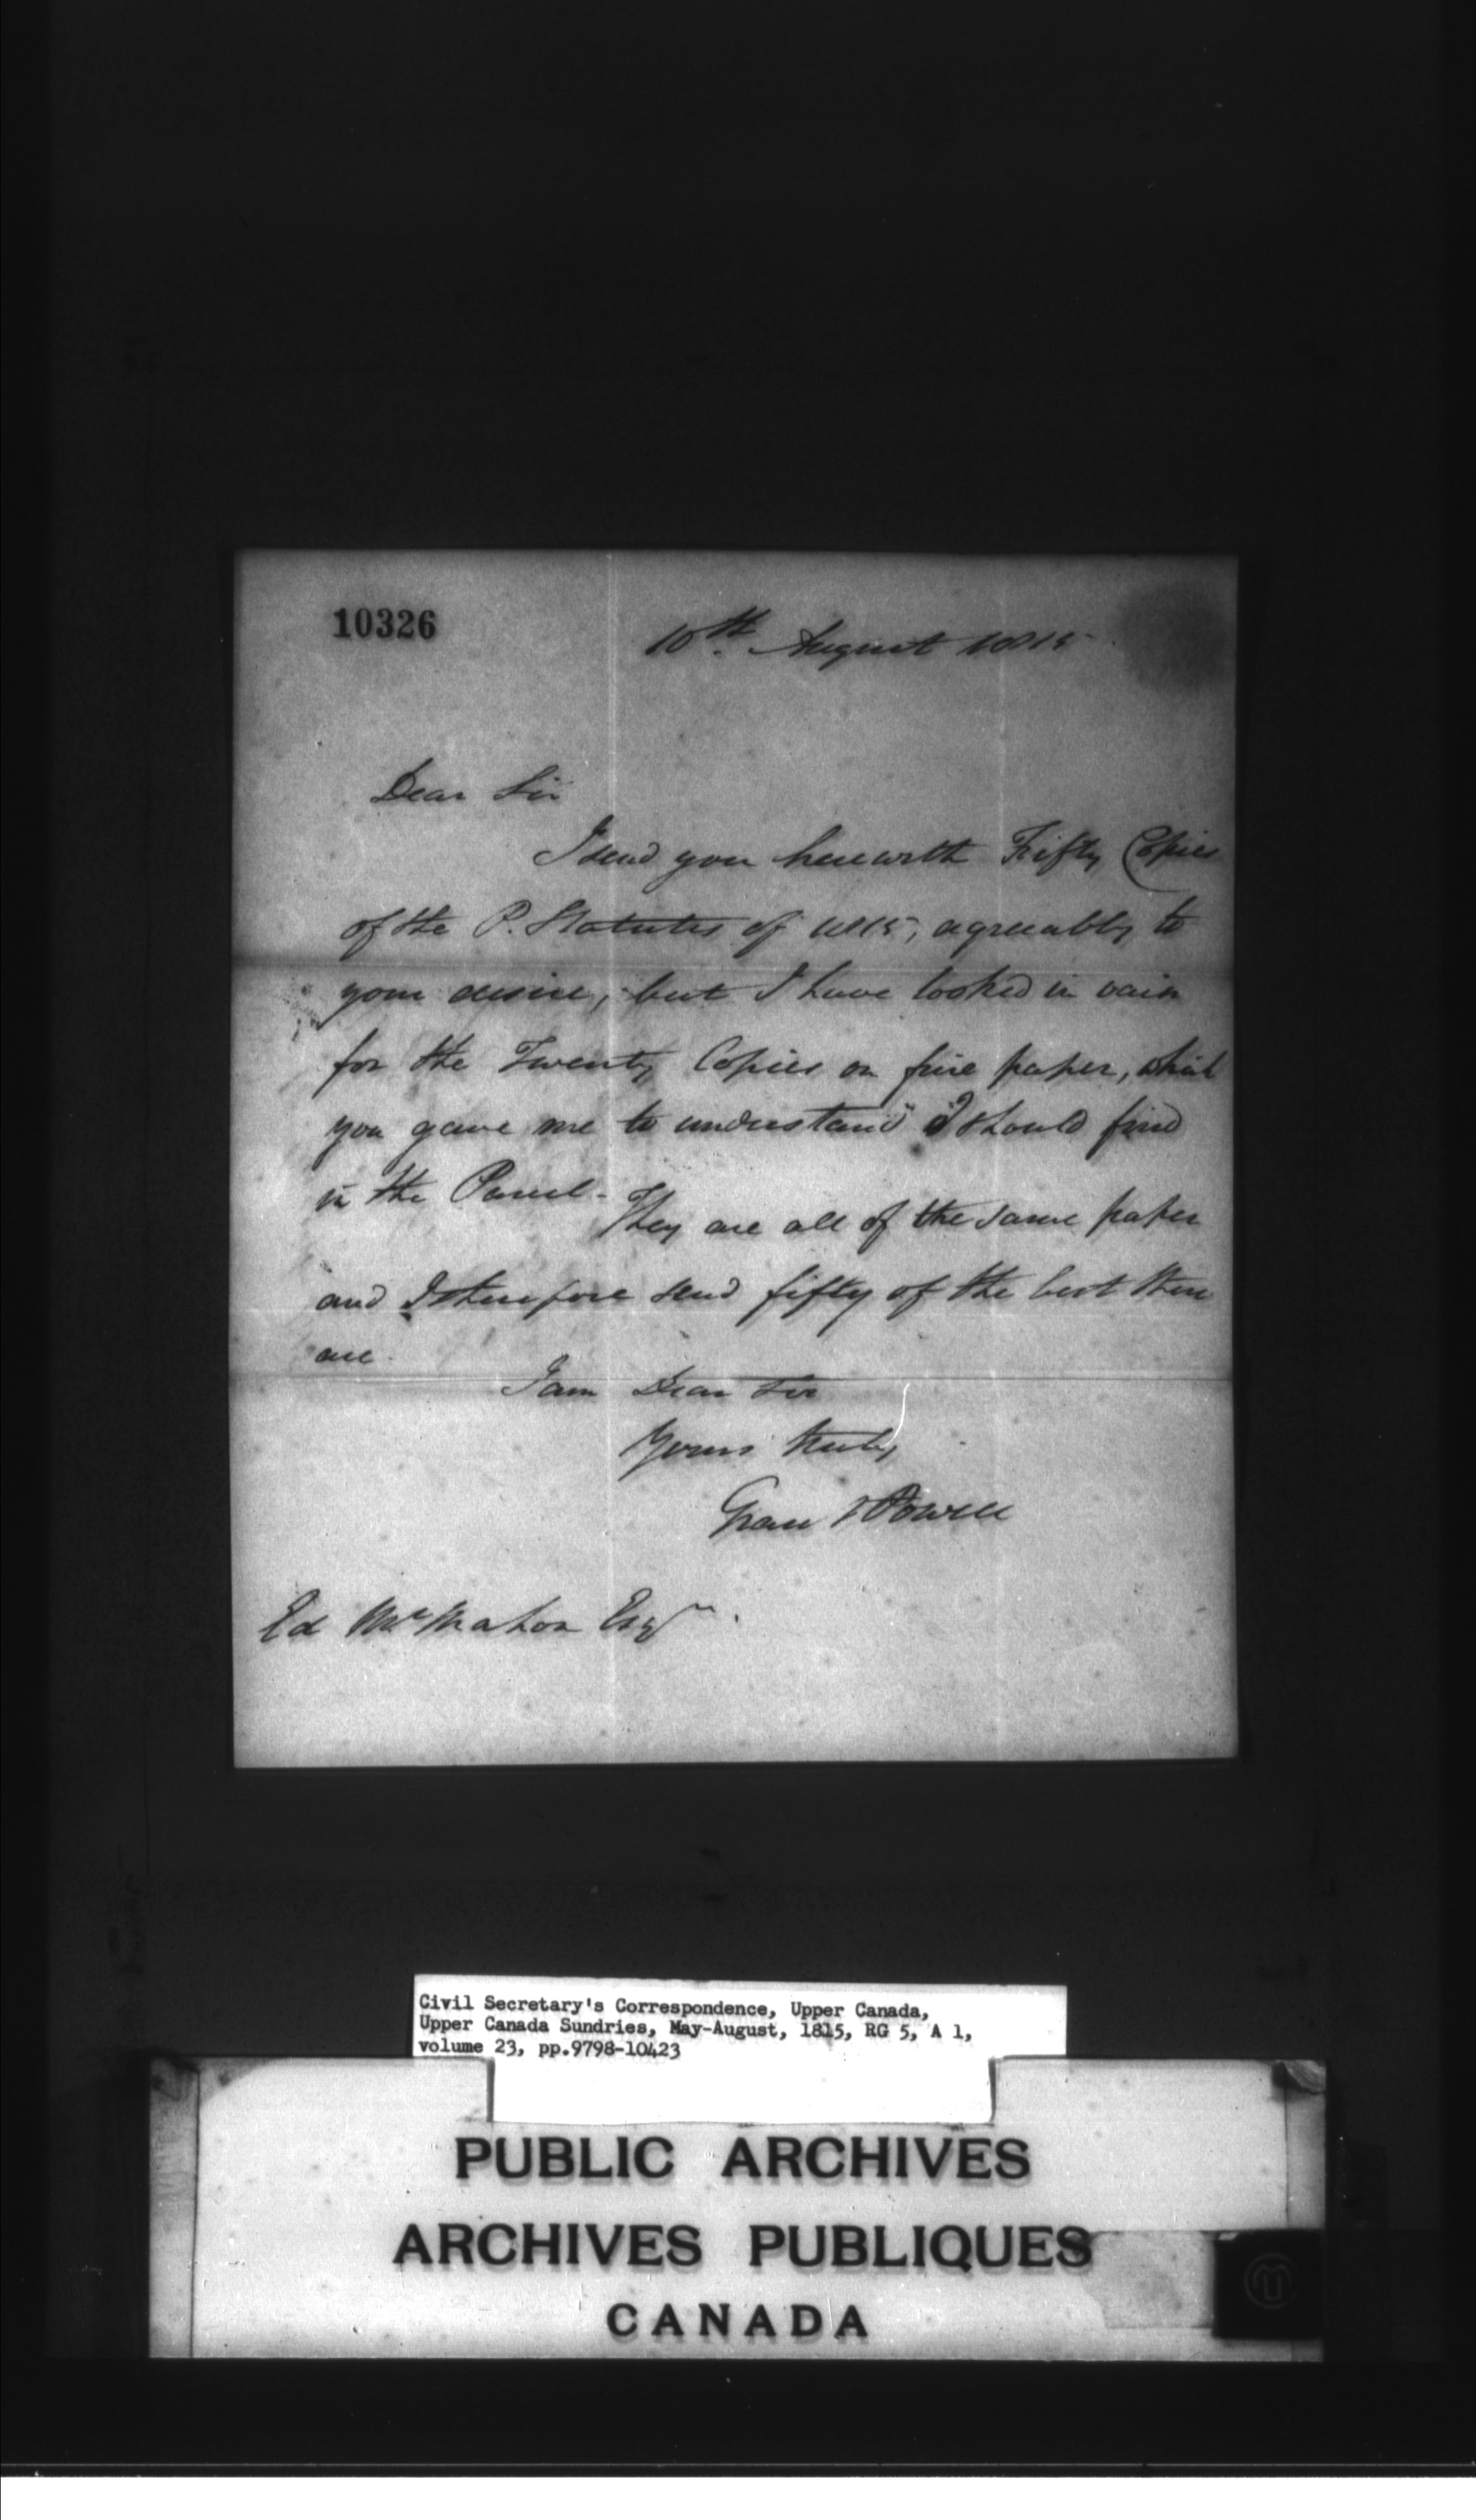 10326
10th. August 1815
Dear Sir
I send you herewith Fifty Copies
of the P. Statutes of 1815, agreeably to
your desire, but I have looked in vain
for the Twenty Copies on fine paper, which
you gave me to understand I should find
in the Parcel-
They are all of the same paper
and I therefore send fifty of the best there
are.
I am Dear Sir
Yours truly
Grant Powell
Ed McMahon Esqr.
Civil Secretary's Correspondence, Upper Canada,
Upper Canada Sundries, May-August, 1815, RG 5, A 1,
volume 23, pp.9798-10423
PUBLIC ARCHIVES
ARCHIVES PUBLIQUES
CANADA